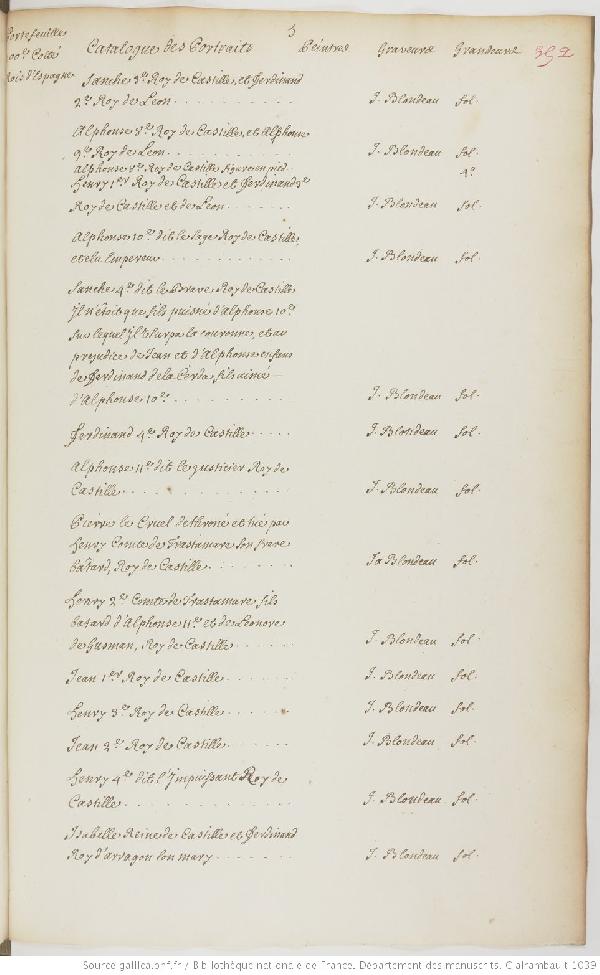 Portefeuille
100.e Cotté
Rois d'Espagne
3
Catalogue des Portraits Peintres Graveurs Grandeurs 352
Sanche 3.e Roy de Castille, et Ferdinand
2.e Roy de Leon . . . . . . . . J. Blondeau fol.
Alphonse 8.e Roy de Castille, et Alphonse
9.e Roy de Leon . . . . . . . . J. Blondeau fol.
Alphonse 8.e Roy de Castille figure en pied 4.o
Henry 1.er Roy de Castille et Ferdinand 3.e
Roy de Castille et de Leon . . . . . J. Blondeau fol.
Alphonse 10.e dit le Sage Roy de Castille,
et elu Empereur . . . . . . . . J. Blondeau fol.
Sanche 4.e dit le Brave Roy de Castille
Jl n'étoit que fils puisné d'Alphonse 10.e
sur lequel Jl Usurpa la couronne, et au
prejudice de Jean et d'Alphonse enfans
de Ferdinand de la Cerda, fils aimé
d'Alphonse 10.e . . . . . . . . J. Blondeau fol.
Ferdinand 4.e Roy de Castille . . . . J. Blondeau fol.
Alphonse 11.e dit le justicier Roy de
Castille . . . . . . . . . . J. Blondeau fol.
Pierre le Cruel dethroné et tué par
Henry Comte de Trastamare son frere
batard, Roy de Castille . . . . . . Ja Blondeau fol.
Henry 2.e Comte de Trastamare, fils
batard d'Alphonse 11.e et de Leonore
de Gusman, Roy de Castille . . . . . J. Blondeau fol.
Jean 1.er Roy de Castille . . . . . . J. Blondeau fol.
Henry 3.e Roy de Castille . . . . . . J. Blondeau fol.
Jean 2.e Roy de Castille . . . . . . J. Blondeau fol.
Henry 4.e dit l'Jmpuissant Roy de
Castille . . . . . . . . . . J. Blondeau fol.
Isabelle Reine de Castille et Ferdinand
Roy d'arragon son mary . . . . . . J. Blondeau fol.
Source gallica.bnf.fr / Bibliothèque nationale de France. Département des manuscrits. Clairambault 1039